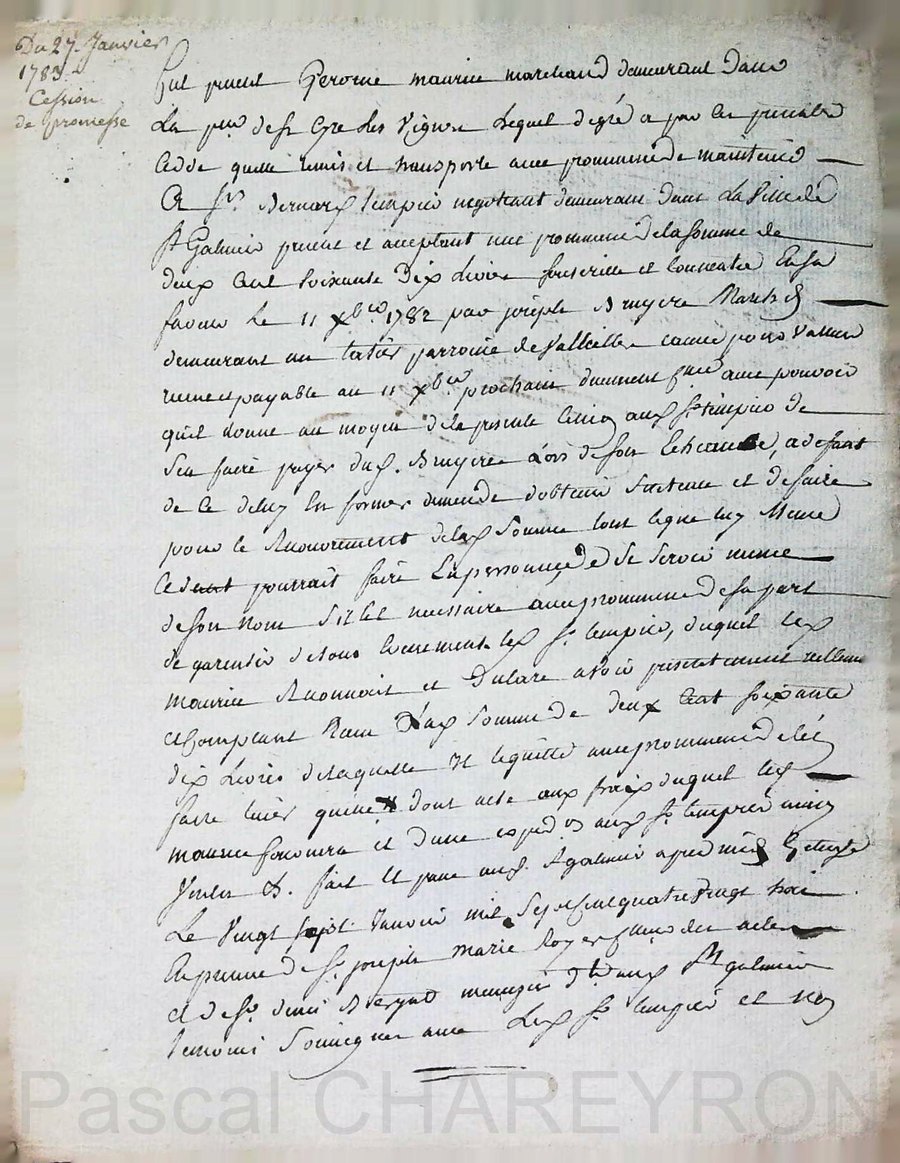 Du 27 Janvier
1783
Cession
de promesse
fut present Gerome maurice marchand demeurant dans
La pse de st Cyre Les Vignes Lequel de gré a par ces presentes
Cedde quitte remis et transporte avec promesse de maintenir
A Sr Bernard tempier negotiant demeurant dans La Ville de
St Galmier present et acceptant une promesse de la somme de
deux cent soixante Dix Livres souscritte et consentie En sa
faveur Le 11 xbre 1782 par joseph Bruyere March d
demeurant au parroisse de Valleille causée pour Valeur
reçue et payable au 11 xbre prochain avec pouvoir
quil donne au moyen de la presente aud Sr tempier de
s'en faire payer dud. Bruyere Lors de son Echeance, a defaut
de ce deluy En former demande d'obtenir Sentence et de faire
pour le Recouvrement de lad Somme tout ce que luy Meme
Cedant pourrait faire de Se Servir meme
de son Nom S'il Est necessaire avec promesse de sa part
de garentir de tous Evenements led Sr tempier, duquel led
maurice Reconnoit et Declare avoir presentement reellement
et Comptant Recu Lad Somme de deux Cent soixante
dix Livres de laquelle Il le quitte avec promesse de l'en
faire tenir quitte dont acte aux frais duquel led
maurice fournira et d'une expedion aud Sr tempier
fait et passé aud. St galmier apres midy
Le Vingt sept Janvier mil Sept Cent quatre Vingt trois
En presence de Sr joseph Marie Royer
et de Sr denis menuzier dt aud St galmier
temoins Soussignes avec Led Sr tempier et non
Pascal CHAREYRON